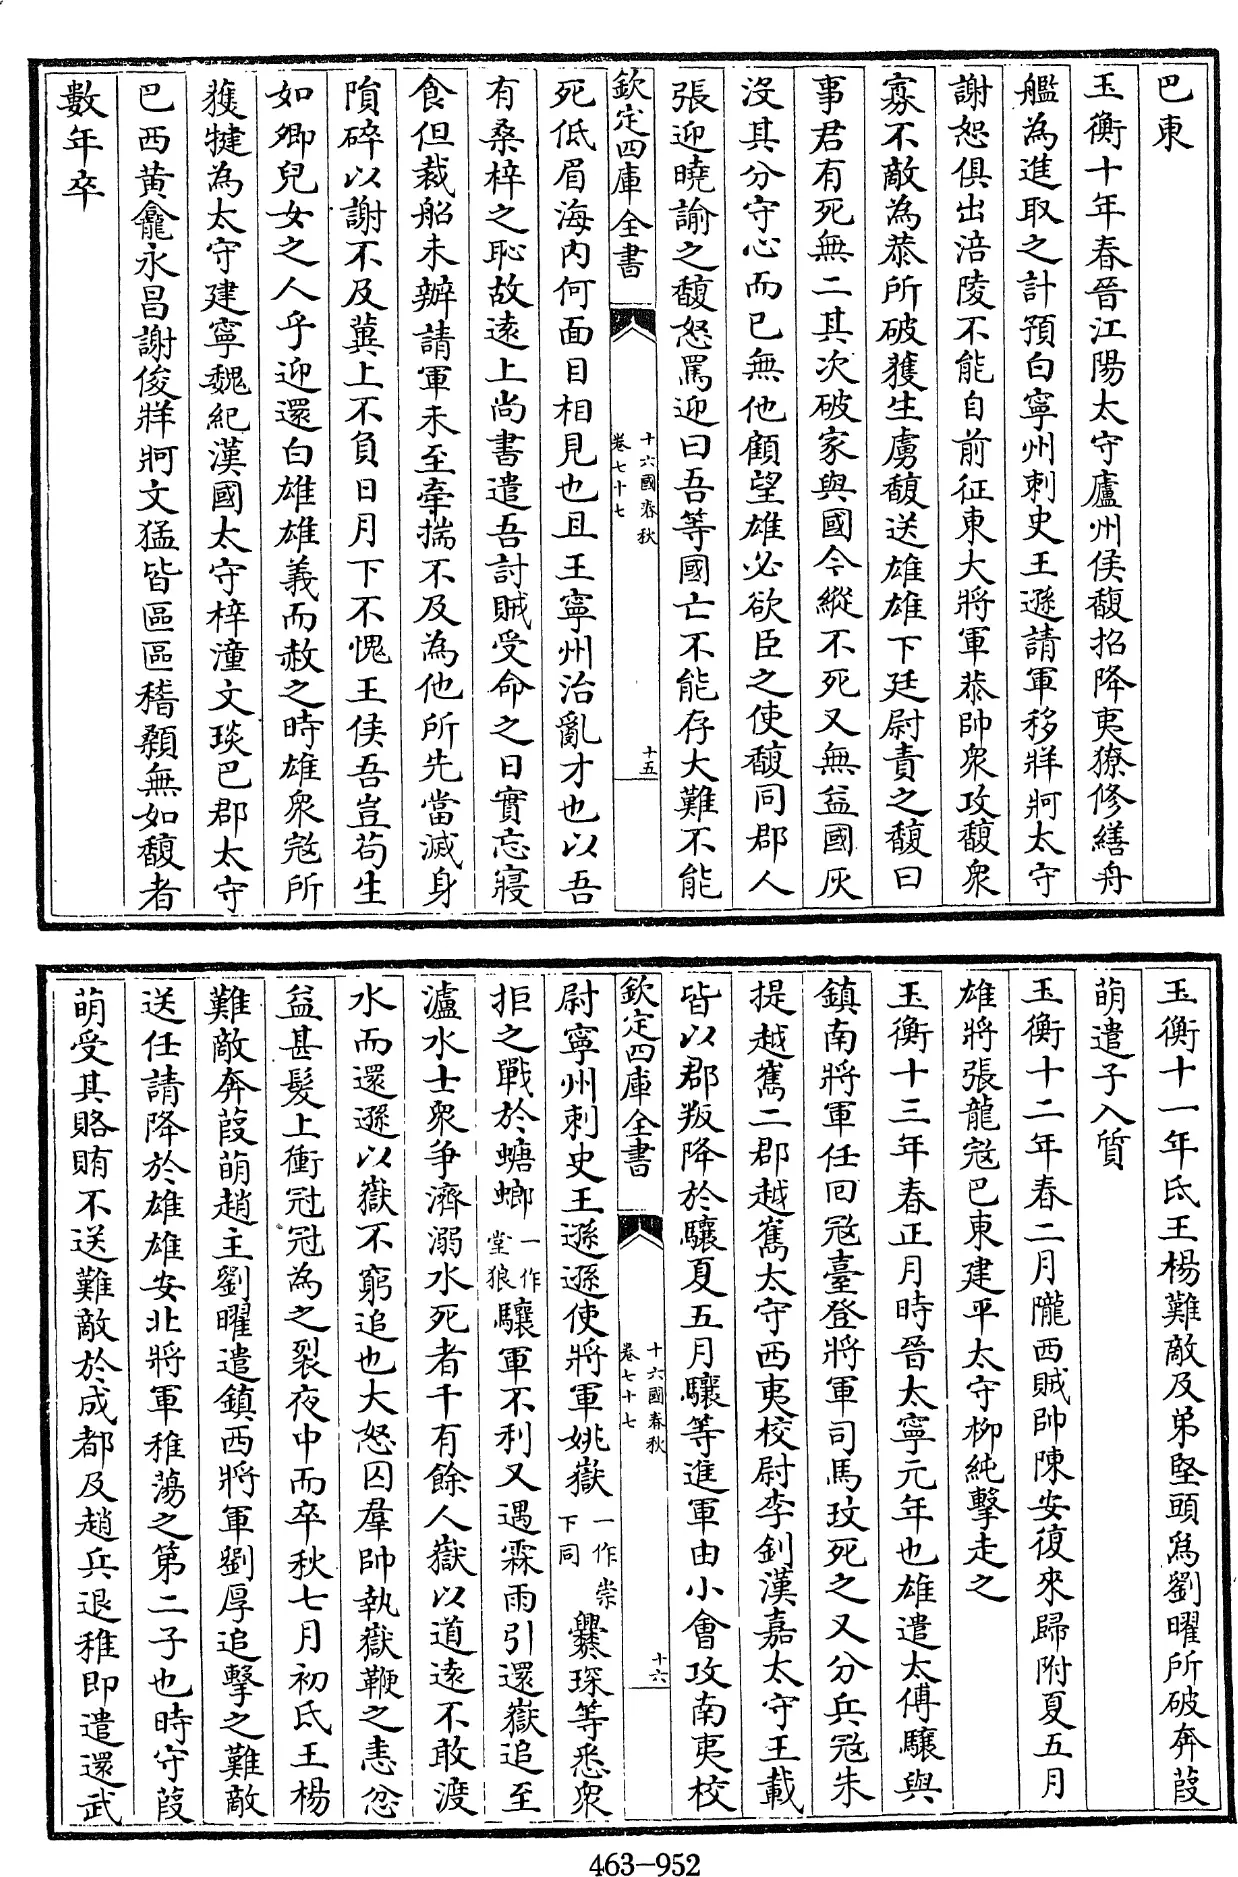 巴東
玉衡十年春晉江陽太守廬州侯馥招降夷獠修繕舟
艦為進取之計預白寧州刺史王遜請軍移牂牁太守
謝恕俱出涪陵不能自前征東大將軍恭帥衆攻馥衆
寡不敵為恭所破獲生虜馥送雄雄下廷尉責之馥曰
事君有死無二其次破家與國今縱不死又無益國灰
沒其分守心而已無他顧望雄必欲臣之使馥同郡人
張迎曉諭之馥怒罵迎曰吾等國亡不能存大難不能
欽定四庫全書
十六國春秋
卷七十七
十五
死低眉海內何面目相見也且王寧州治亂才也以吾
有桑梓之恥故遠上尚書遣吾討賊受命之日實忘寢
食但裁船未辦請軍未至牽揣不及為他所先當滅身
隕碎以謝不及冀上不負日月下不愧王侯吾豈苟生
如卿兒女之人乎迎還白雄雄義而赦之時雄衆宼所
獲犍為太守建寧魏紀漢國太守梓潼文琰巴郡太守
巴西黃龕永昌謝俊牂牁文猛皆區區稽顙無如馥者
數年卒
玉衡十一年氐王楊難敵及弟堅頭為劉曜所破奔葭
萌遣子入質
玉衡十二年春二月隴西賊帥陳安復來歸附夏五月
雄將張龍宼巴東建平太守柳純擊走之
玉衡十三年春正月時晉太寧元年也雄遣太傅驤與
鎮南將軍任回宼臺登將軍司馬玟死之又分兵宼朱
提越嶲二郡越嶲太守西夷校尉李釗漢嘉太守王載
皆以郡叛降於驤夏五月驤等進軍由小會攻南夷校
欽定四庫全書
十六國春秋
卷七十七
十六
尉寧州刺史王遜遜使將軍姚嶽一作崇下同爨琛等悉衆
拒之戰於螗蜋一作堂狼驤軍不利又遇霖雨引還嶽追至
瀘水士衆爭濟溺水死者千有餘人嶽以道遠不敢渡
水而還遜以嶽不窮追也大怒囚羣帥執嶽鞭之恚忿
益甚髮上衝冠冠為之裂夜中而卒秋七月初氐王楊
難敵奔葭萌趙主劉曜遣鎮西將軍劉厚追擊之難敵
送任請降於雄雄安北將軍稚蕩之第二子也時守葭
萌受其賂賄不送難敵於成都及趙兵退稚即遣還武
463-952